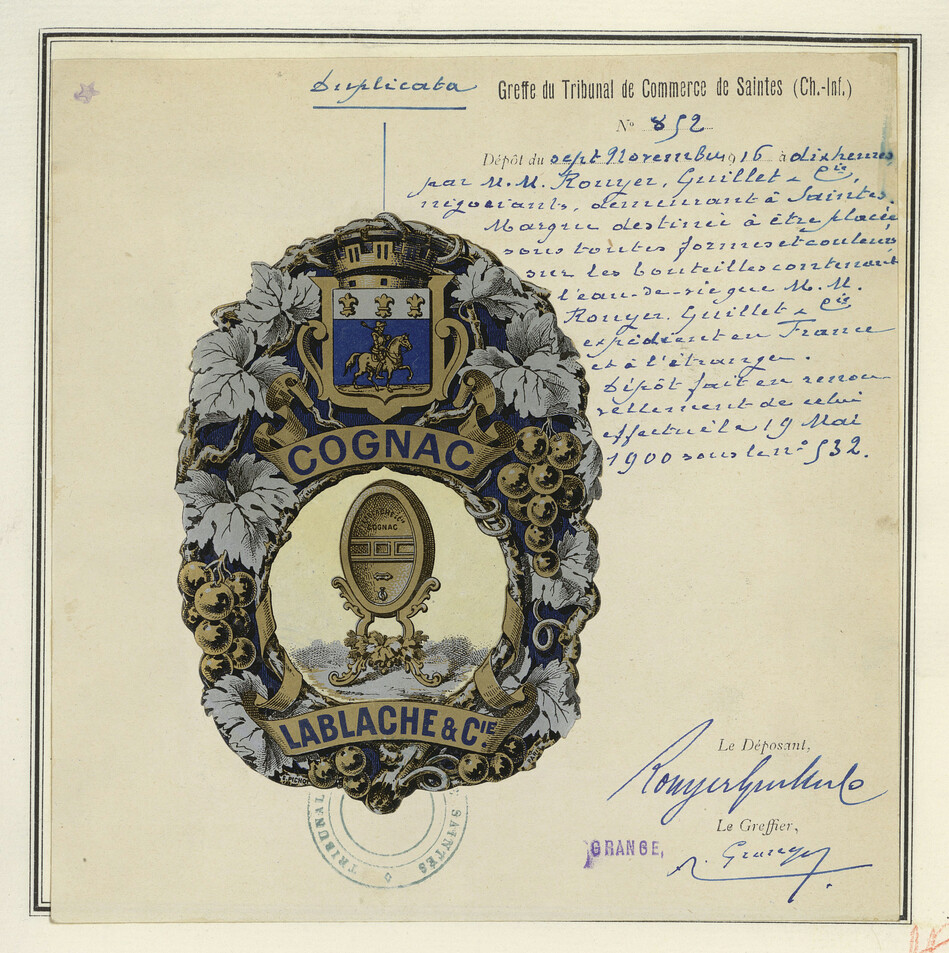 Duplicata
Greffe du Tribunal de Commerce de Saintes (Ch.-Inf.)
N° 852
Dépôt du sept Novembre 1916 à dix heures
par M.M. Rouyer, Guillet & Cie,
négociants, demeurant à Saintes.
Marque destinée à être placée
sous toutes formes et couleurs
sur les bouteilles contenant
l'eau-de-vie que M.M.
Rouyer, Guillet & Cie
expédient en France
et à l'étranger.
Dépôt fait en renou-
vellement de celui
effectué le 19 Mai
1900 sous le n° 532.
COGNAC
LABLACHE & Cie
COGNAC
LABLACHE & CIE
TRIBUNAL
SAINTES
Le Déposant,
Rouyer Guillet & Co
Le Greffier,
GRANGE,
A. Grange